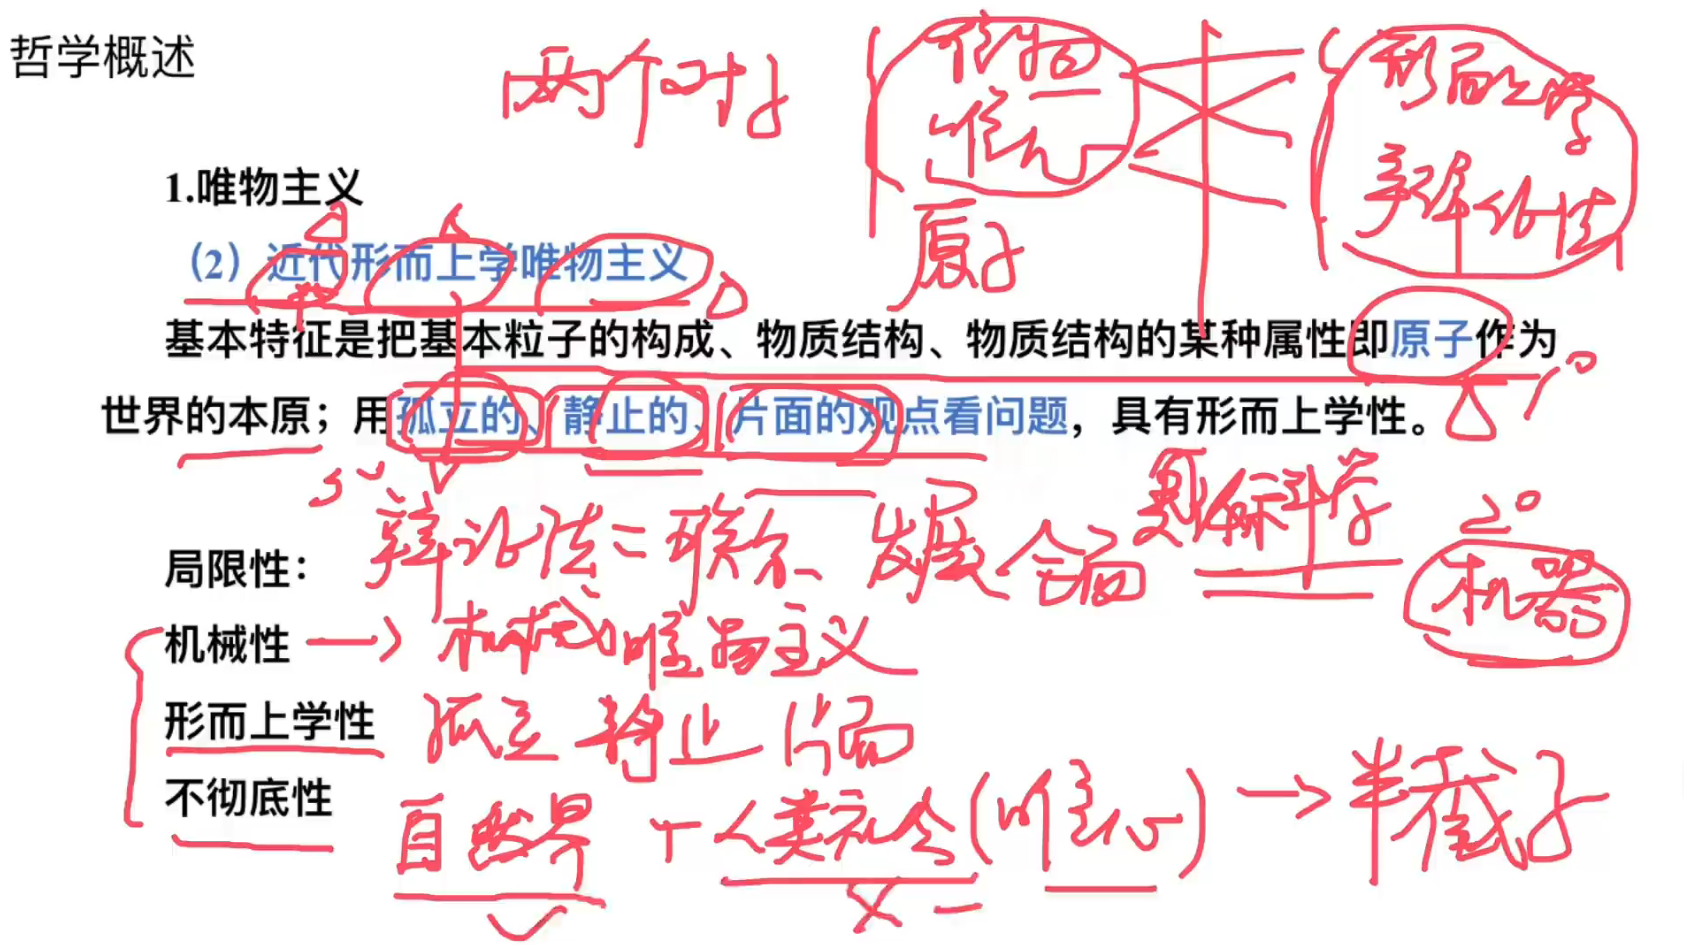 哲学概述
两个对子
唯物
唯心
形而上学
辩证法
原子
1.唯物主义
（2）近代形而上学唯物主义
基本特征是把基本粒子的构成、物质结构、物质结构的某种属性即原子作为
1°
世界的本原；用孤立的、静止的、片面的观点看问题，具有形而上学性。
辩论法=联系 发展 全面
更解科学
2°
机器
局限性：
机械性 → 机械唯物主义
形而上学性 孤立 静止 片面
不彻底性
自然界 + 人类社会(唯心) → 半截子